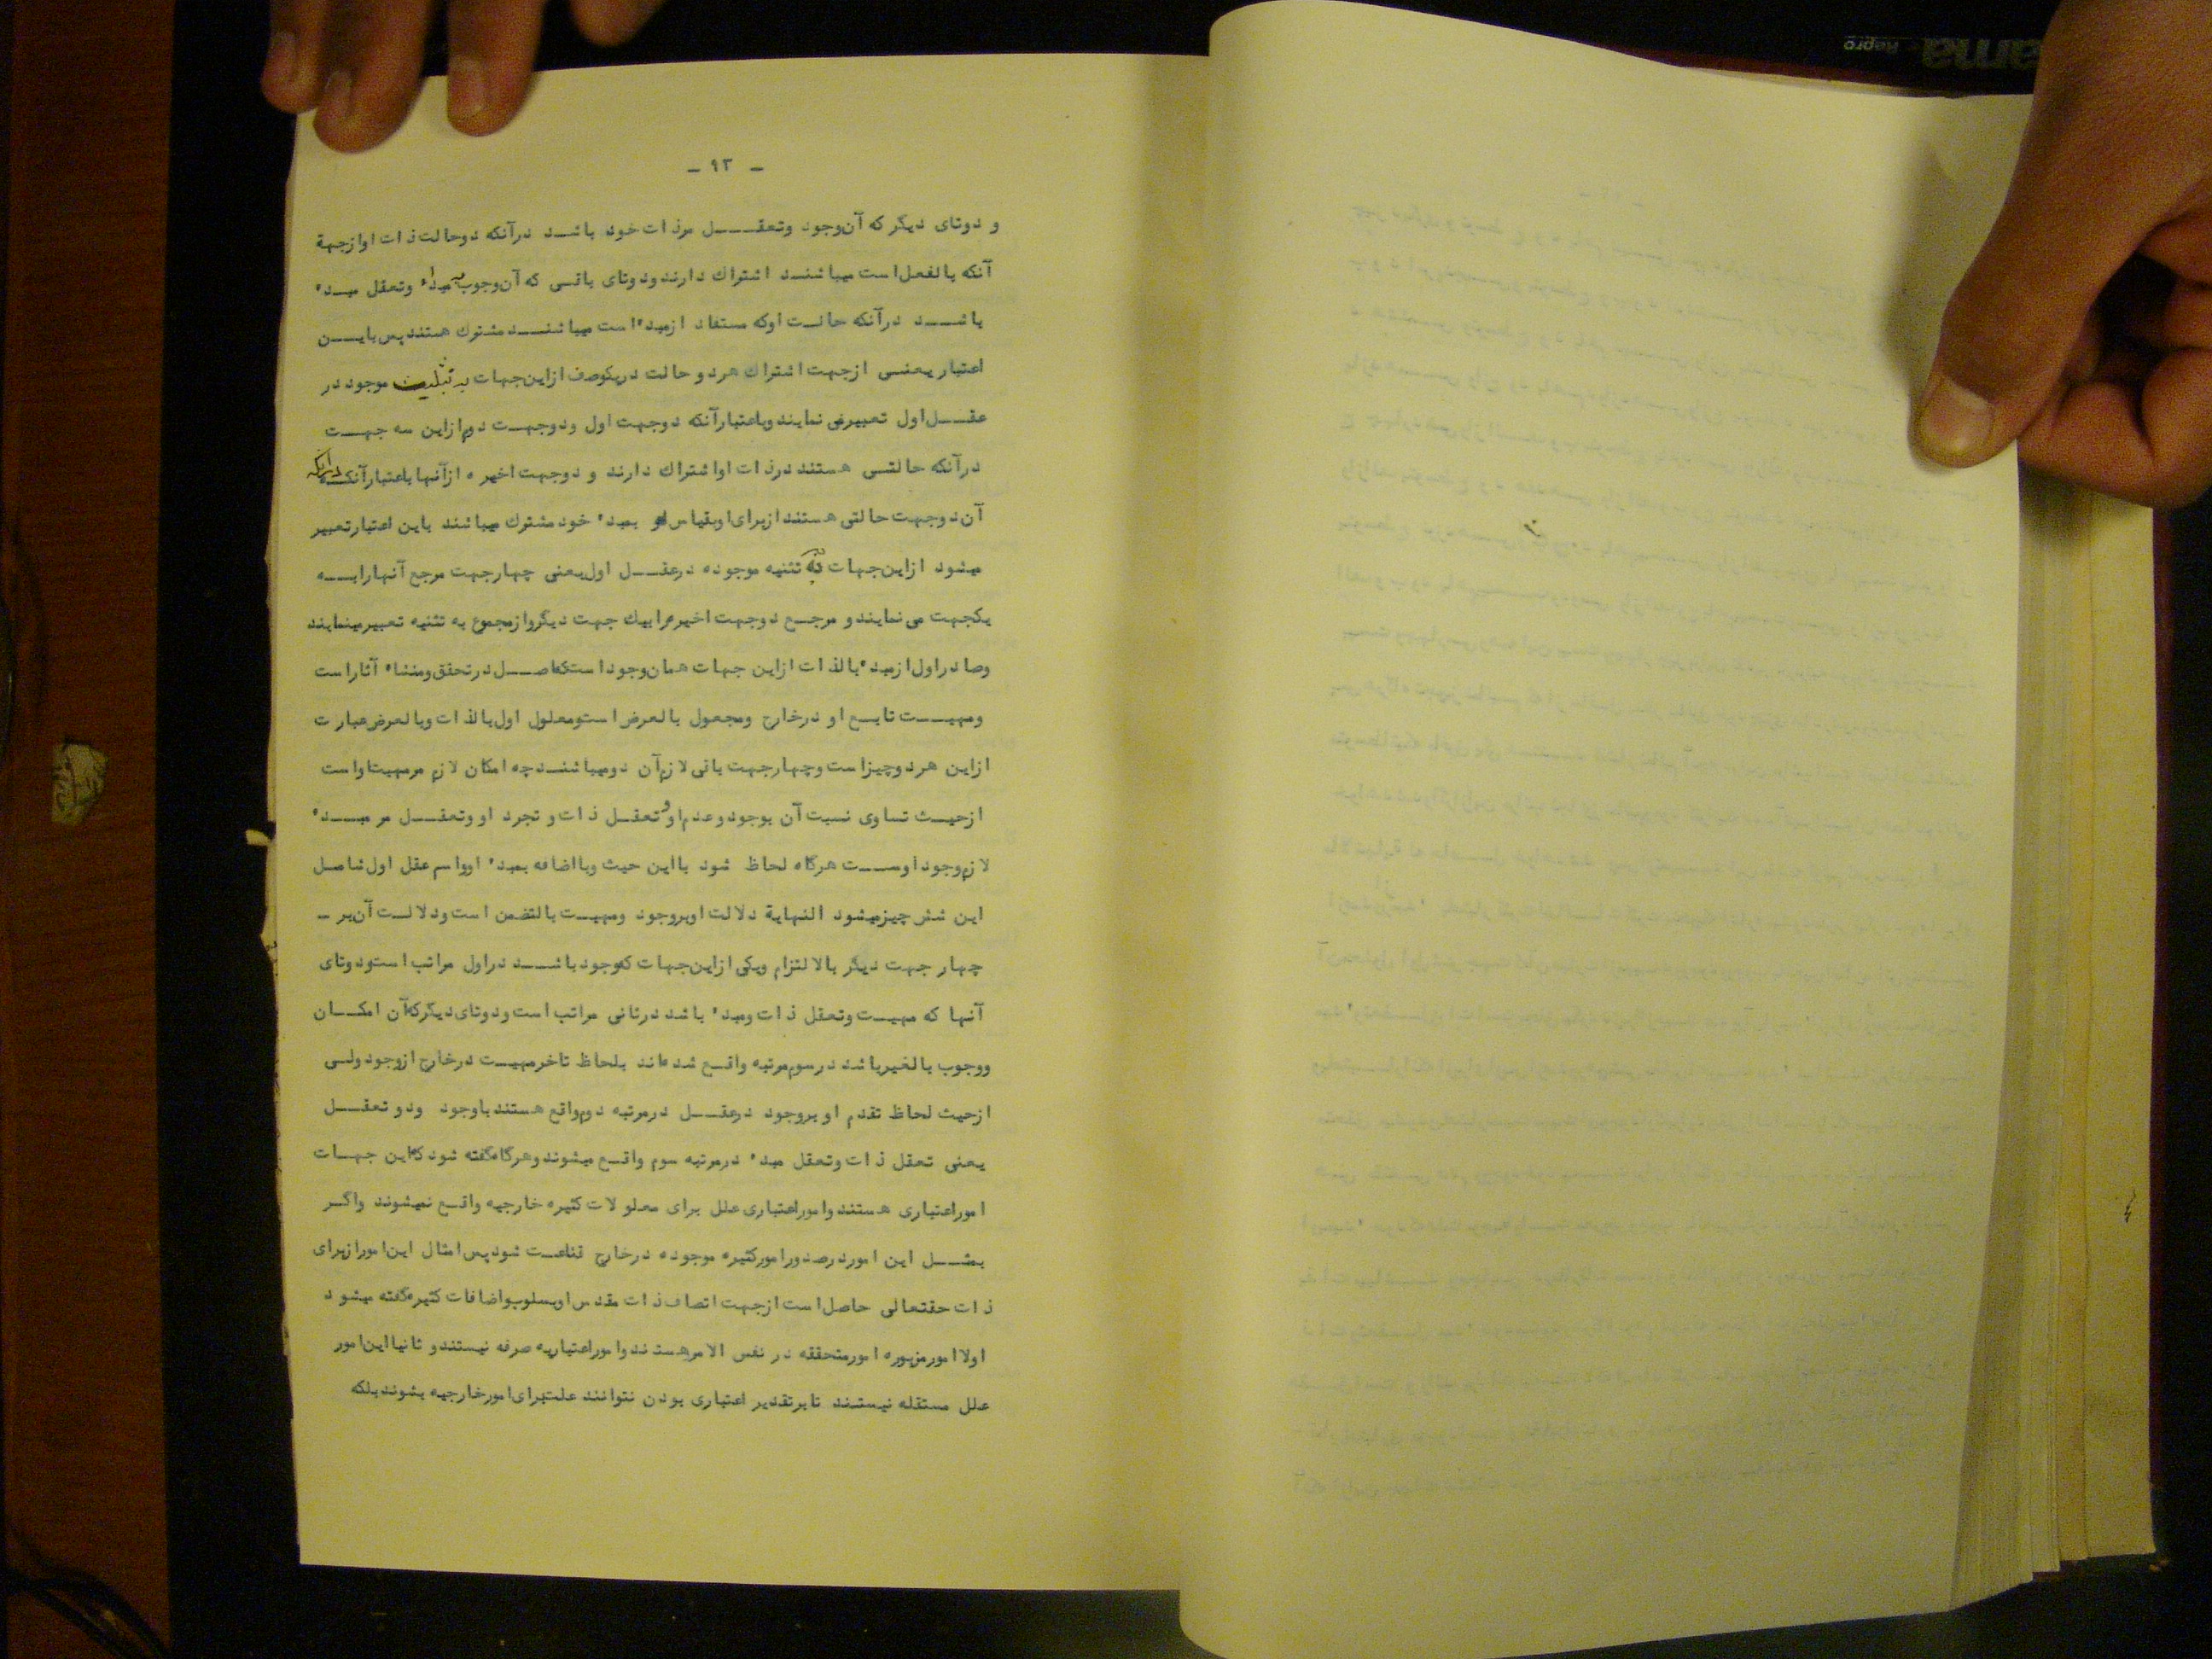 ـ ۹۳ ـ
و دوتای دیگر که آن وجود وتعقـــل مرذات خود باشـد درآنکه دوحالت ذات اوازجهة
آنکه بالفعل است میباشنـد اشتراك دارند ودوتای باقـی که آن وجوب به مبدأ وتعقل مبـدء
باشــد درآنکه حالـت اوکه مستفاد ازمبدء است میباشنـــد مشترك هستند پس بایـــن
اعتبار یعنـی ازجهت اشتراك هردو حالت دریکوصف ازاین جهات به تثلیث موجود در
عقـــل اول تعبیرمی نمایند وباعتبارآنکه دوجهت اول ودوجهـت دوم ازاین سه جهـــت
درآنکه حالتـی هستند درذات او اشتراك دارند و دوجهت اخیره ازآنها باعتبارآنکـه درآنکه
آن دوجهت حالتی هستند ازبرای اوبقیاس او بمبدء خود مشترك میباشند باین اعتبارتعبیر
میشود ازاین جهات به تثنیه موجوده درعقـــل اول یعنی چهارجهت مرجع آنهارابـــه
یکجهت می نمایند و مرجـع دوجهت اخیره رابیك جهت دیگر وازمجموع به تثنیه تعبیرمینمایند
وصادراول ازمبدء بالذات ازاین جهات همان وجود است که اصـــل درتحقق ومنشاء آثاراست
ومهیـــت تابـع او درخارج ومجعول بالعرض است ومعلول اول بالذات وبالعرض عبارت
ازاین هردوچیزاست وچهارجهت باقی لازم آن دومیباشنـد چه امکان لازم مرمهیت اواست
ازحیـث تساوی نسبت آن بوجود وعدم او و تعقـل ذات و تجرد او وتعقـــل مر مبـــدء
لازم وجود اوســـت هرگاه لحاظ شود بااین حیث وبااضافه بمبدء اوواسم عقل اول شامـل
این شش چیزمیشود النهایة دلالت اوبروجود ومهیـت بالتضمن است ودلالـت آن بر ـ
چهار جهت دیگر بالالتزام ویکی ازاین جهات که وجود باشـــد دراول مراتب است ودوتای
آنها که مهیـت وتعقل ذات ومبدء باشد درثانی مراتب است ودوتای دیگرکه آن امکـان
ووجوب بالغیرباشد درسوم مرتبه واقـع شده اند بلحاظ تاخرمهیـت درخارج ازوجود ولـی
ازحیث لحاظ تقدم او بروجود درعقـــل درمرتبه دوم واقع هستند باوجود ودو تعقـــل
یعنی تعقل ذات وتعقل مبدء درمرتبه سوم واقـع میشوند وهرگاه گفته شود که این جهـات
اموراعتباری هستند واموراعتباری علل برای معلولات کثیره خارجیه واقـع نمیشوند واگـر
بمثـــل این اموردرصدورامورکثیره موجوده درخارج قناعـت شود پس امثال این امورازبرای
ذات حقتعالی حاصل است ازجهت اتصاف ذات مقدس اوبسلوب واضافات کثیره گفته میشود
اولا امورمزبوره امورمتحققه در نفس الامرهستند واموراعتباریه صرفه نیستند و ثانیا این امور
علل مستقله نیستند تابرتقدیر اعتباری بودن نتوانند علت برای امورخارجیه بشوند بلکه